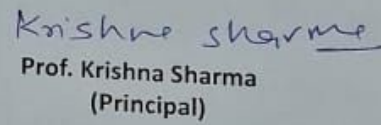 Krishne sharme
Prof. Krishna Sharma
(Principal)